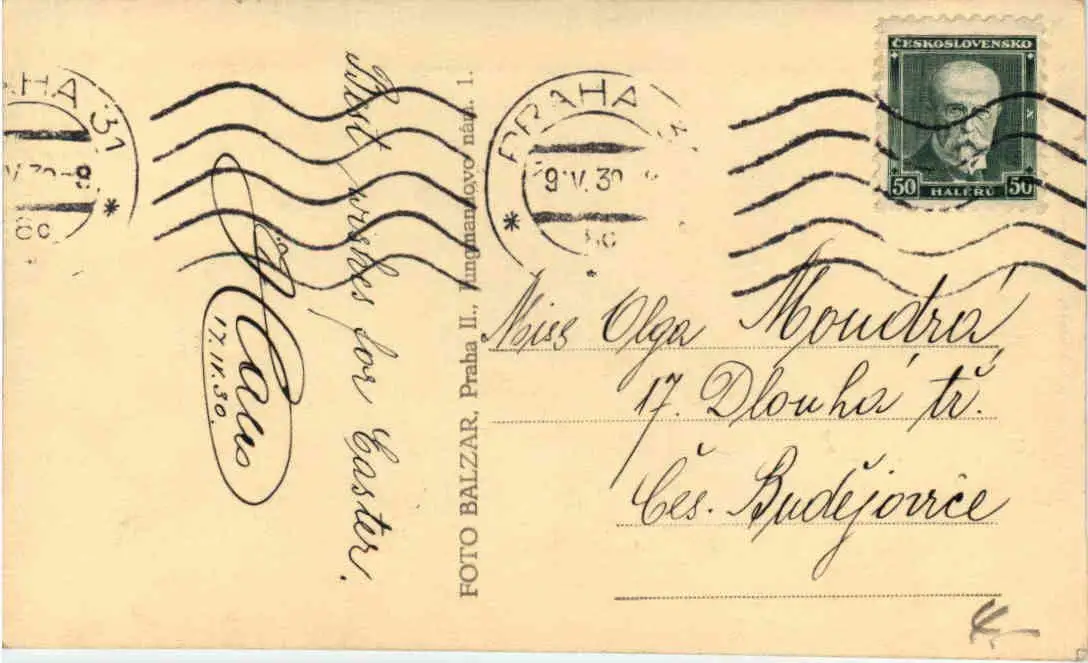 PRAHA 31
Best wishes for Easter.
17.IV.30.
FOTO BALZAR, Praha II., Jungmannovo nám. 1.
PRAHA
9.V.30
ČESKOSLOVENSKO
50 HALÉRŮ 50
Miss Olga Moudrá
17. Dlouhá tř.
Čes. Budějovice